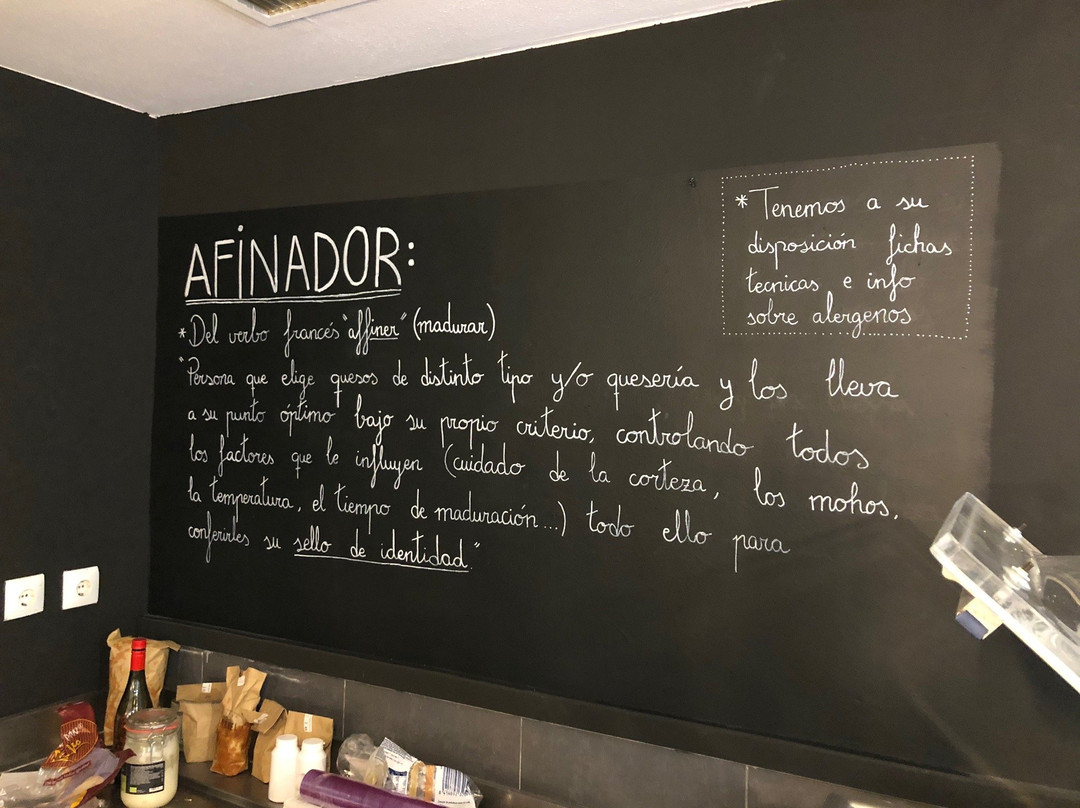 AFiNADOR:
*Del verbo francés "affiner" (madurar)
"Persona que elige quesos de distinto tipo y/o quesería y los lleva
a su punto óptimo bajo su propio criterio, controlando todos
los factores que le influyen (cuidado de la corteza, los mohos,
la temperatura, el tiempo de maduración...) todo ello para
conferirles su sello de identidad."
*Tenemos a su
disposición fichas
tecnicas e info
sobre alergenos